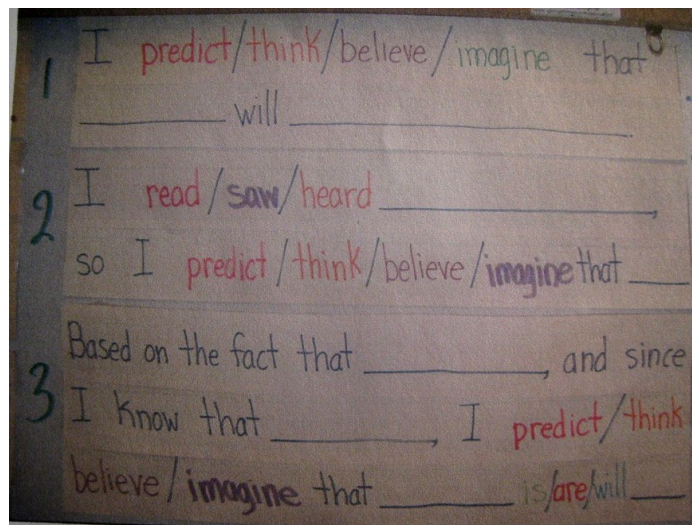 1 I predict/think/believe/imagine that
_______ will _______.
2 I read/saw/heard _______,
so I predict/think/believe/imagine that ___
Based on the fact that _______, and since
3 I know that _______, I predict/think
believe/imagine that _______ is/are/will ___